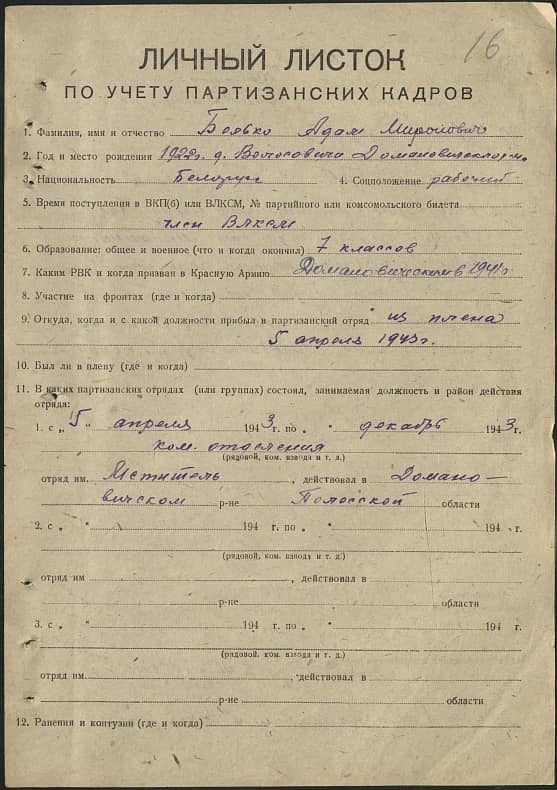 16
ЛИЧНЫЙ ЛИСТОК
ПО УЧЕТУ ПАРТИЗАНСКИХ КАДРОВ
1. Фамилия, имя и отчество Боявко Адам Миронович
2. Год и место рождения 1922г. д. Волосовичи Домановического р-на
3. Национальность Белорус 4. Соцположение рабочий
5. Время поступления в ВКП(б) или ВЛКСМ, № партийного или комсомольского билета
член ВЛКСМ
6. Образование: общее и военное (что и когда окончил) 7 классов
7. Каким РВК и когда призван в Красную Армию Домановическим в 1941г
8. Участие на фронтах (где и когда)
9. Откуда, когда и с какой должности прибыл в партизанский отряд из плена
5 апреля 1943г.
10. Был ли в плену (где и когда)
11. В каких партизанских отрядах (или группах) состоял, занимаемая должность и район действия
отряда:
1. с „ 5 " апреля 1943 г. по „ " декабрь 1943 г.
ком. отделения
(рядовой, ком. взвода и т. д.)
отряд им. Мститель, действовал в Домано-
вичском р-не Полесской области
2. с „ " 194 г. по „ " 194 г.
(рядовой, ком. взвода и т. д.)
отряд им , действовал в
р-не области
3. с „ " 194 г. по „ " 194 г.
(рядовой, ком. взвода и т. д.)
отряд им. , действовал в
р-не области
12. Ранения и контузии (где и когда)